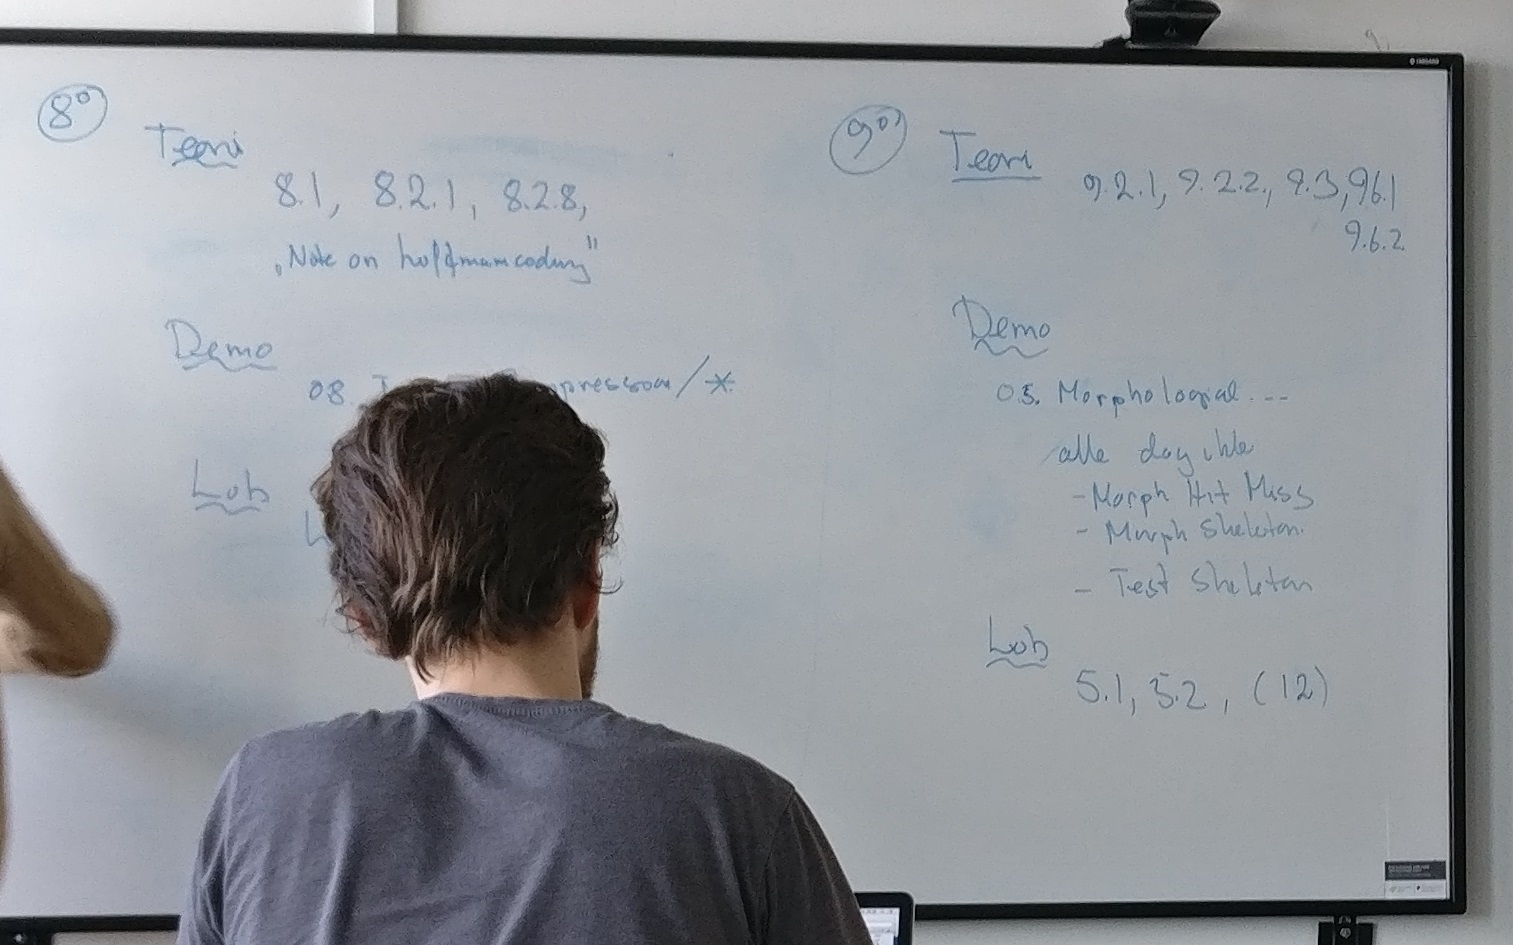 8º
Teori
8.1, 8.2.1, 8.2.8,
„Note on huffmann coding"
Demo
08. pression/*
Lab
9º
Teori
9.2.1, 9.2.2, 9.3, 9.6.1
9.6.2
Demo
05. Morphological...
alle
- Morph Hit Miss
- Morph Skeleton
- Test Skeleton
Lab
5.1, 5.2, (12)